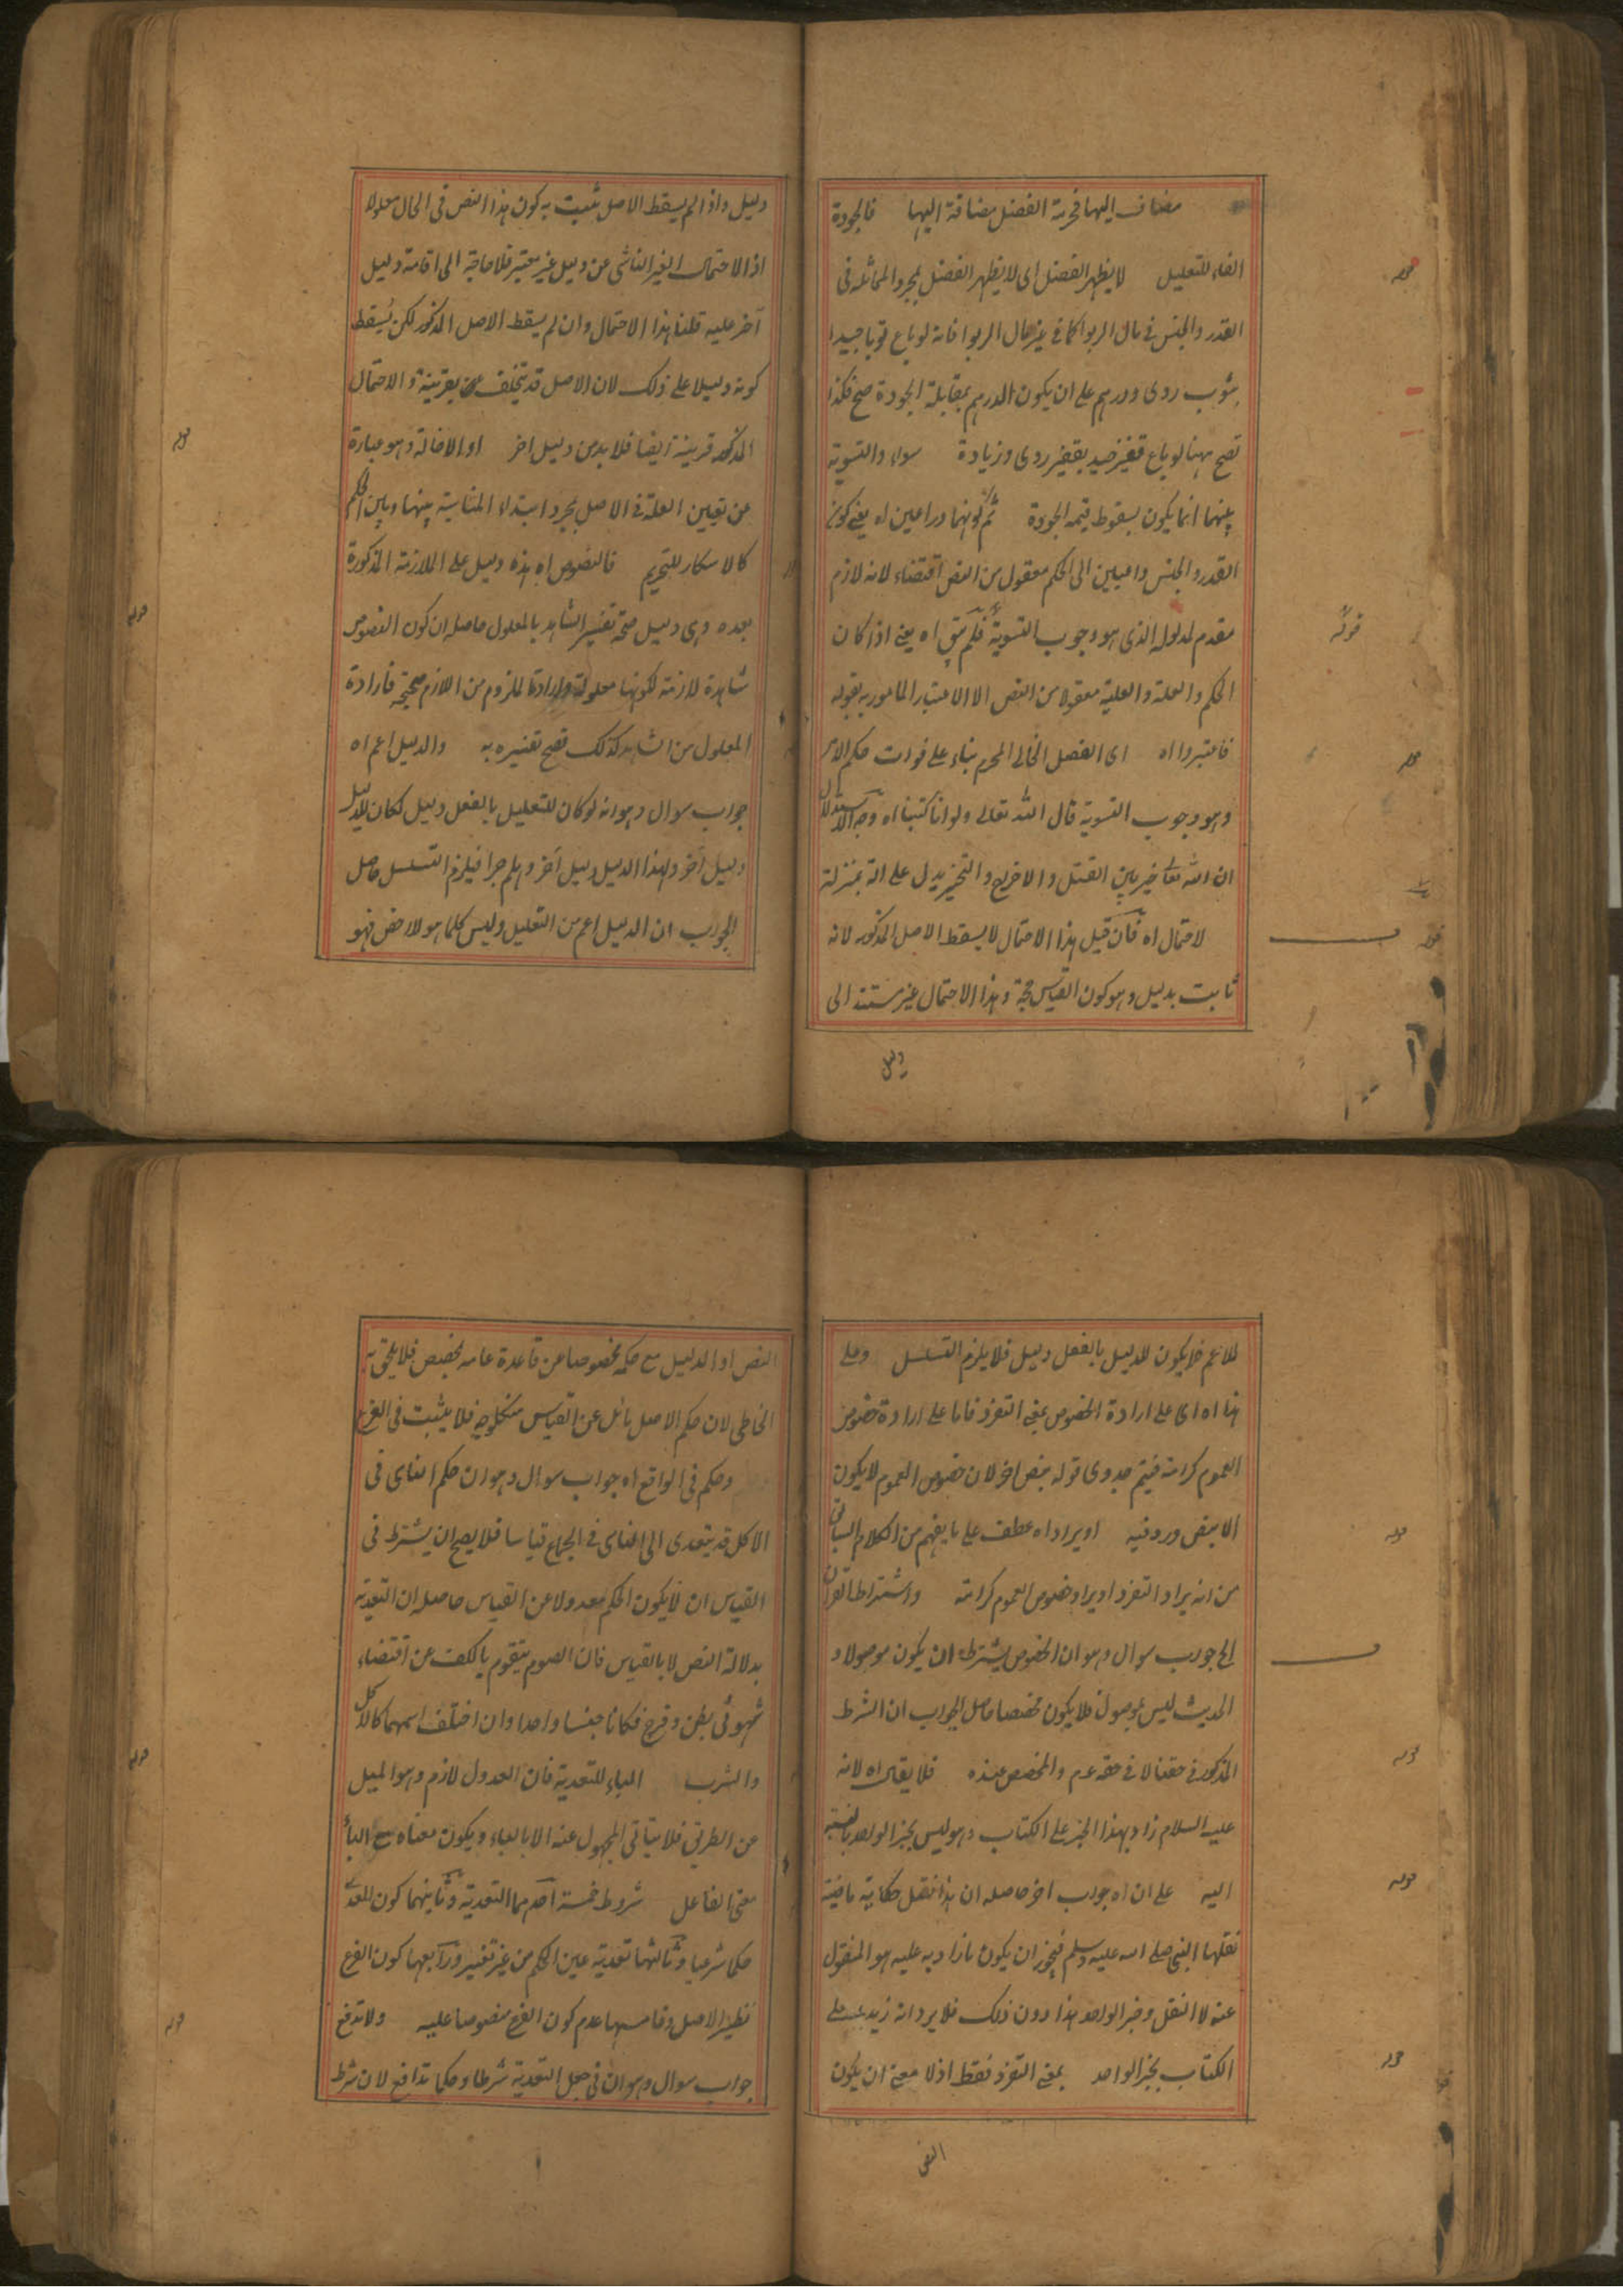 مضاف اليها فحرمة الفضل مضافة اليها فالجودة
الفاء للتعليل لا يظهر الفضل اى لا يظهر الفضل بمجرد المماثلة فى
القدر والجنس فى مال الربوا كما فى غير مال الربوا فانه لو باع ثوبا جيدا
بثوب ردى ودرهم على ان يكون الدرهم بمقابلة الجودة صح فكذا
تصح ههنا لو باع قفيز جيد بقفيز ردى وزيادة سواء والتسوية
بينهما انما يكون بسقوط قيمة الجودة ثم كونهما داعيين اه يعنى كون
القدر والجنس داعيين الى الحكم معقول من النص اقتضاء لانه لازم
مقدم لمدلوله الذى هو وجوب التسوية فلم يبق اه يعنى اذا كان
الحكم والعلة والعلية معقولا من النص الا الاعتبار المامور به بقوله
فاعتبروا اه اى الفضل الخالى المحرم بناء على فوات حكم الامر
وهو وجوب التسوية قال الله تعالى ولو انا كتبنا اه وجه الاستدلال
ان الله تعالى خير بين القتل والاخراج والتخيير يدل على انه بمنزلة
لاحتمال اه فان قيل هذا الاحتمال لا يسقط الاصل المذكور لانه
ثابت بدليل وهو كون القياس حجة وهذا الاحتمال غير مستند الى
دليل
قوله
قوله
قوله
قوله
دليل واذا لم يسقط الاصل يثبت به كون هذا النص فى الحال معلولا
اذ الاحتمال الغير الناشى عن دليل غير معتبر فلا حاجة الى اقامة دليل
آخر عليه قلنا هذا الاحتمال وان لم يسقط الاصل المذكور لكن يسقط
كونه دليلا على ذلك لان الاصل قد يتخلف عن بقرينة والاحتمال
المذكور قرينة ايضا فلا بد من دليل اخر او الاخالة وهو عبارة
عن تعيين العلة فى الاصل بمجرد ابداء المناسبة بينها وبين الحكم
كالاسكار للتحريم فالنصوص اه هذه دليل على الملازمة المذكورة
بعده وهى دليل صحة تفسير الشاهد بالمعلول حاصله ان كون النصوص
شاهدة لازمة لكونها معلولة وارادة الملزوم من اللازم صحيحة فارادة
المعلول من الشاهد كذلك تصح تفسيره به والدليل اعم اه
جواب سوال وهو انه لو كان للتعليل بالفعل دليل لكان للدليل
دليل آخر ولهذا الدليل دليل آخر وهلم جرا فيلزم التسلسل حاصل
الجواب ان الدليل اعم من التعليل وليس كلما هو لازم فهو
قوله
قوله
للاعم فلا يكون للدليل بالفعل دليل فلا يلزم التسلسل وعلى
هذا اه اى على ارادة الخصوص بمعنى التفرد فاما على ارادة خصوص
العموم كرامة فيتم جدوى قوله بنص اخر لان خصوص العموم لا يكون
الا بنص ورد فيه او يراد اه عطف على ما يفهم من الكلام السابق
من انه يراد التفرد او يراد خصوص العموم كرامة واشتراط القران
الخ جواب سوال وهو ان الخصوص يشترط ان يكون موصولا و
الحديث ليس بموصول فلا يكون مخصصا حاصل الجواب ان الشرط
المذكور فى حقنا لا فى حقه عدم والمخصص عنده فلا يقال اه لانه
عليه السلام زاد بهذا الخبر على الكتاب وهو ليس بخبر الواحد بالنسبة
اليه على ان اه جواب اخر حاصله ان هذا نقل حكاية ماضية
نقلها النبى صلى الله عليه وسلم فيجوز ان يكون ما زاد به عليه هو المنقول
عنه لا النقل وخبر الواحد هذا دون ذلك فلا يرد انه زيد على
الكتاب بخبر الواحد بمعنى التفرد فقط اذ لا معنى ان يكون
النص
قوله
قوله
قوله
قوله
النص او الدليل مع حكمه مخصوصا عن قاعدة عامة بخصيص فلا يلحق به
الخاطى لان حكم الاصل مائل عن القياس من كل وجه فلا يثبت فى الفرع
وحكم فى الواقع اه جواب سوال وهو ان حكم الناسى فى
الاكل قد يتعدى الى الناسى فى الجماع قياسا فلا يصح ان يشترط فى
القياس ان لا يكون الحكم معدولا عن القياس حاصله ان التعدية
بدلالة النص لا بالقياس فان الصوم يتقوم بالكف عن اقتضاء
شهوتى بطن وفرج فكانا جنسا واحدا وان اختلف اسمهما كالاكل
والشرب الباء للتعدية فان العدول لازم وهو الميل
عن الطريق فلا يتاتى المجهول عنه الا بالباء ويكون معناه مع الباء
معنى الفاعل شروط خمسة احدهما التعدية وثانيهما كون المعدى
حكما شرعيا وثالثها تعدية عين الحكم من غير تغيير ورابعها كون الفرع
نظير الاصل وخامسها عدم كون الفرع منصوصا عليه ولا تدافع
جواب سوال وهو ان فى جعل التعدية شرطا وحكما تدافع لان شرط
قوله
قوله